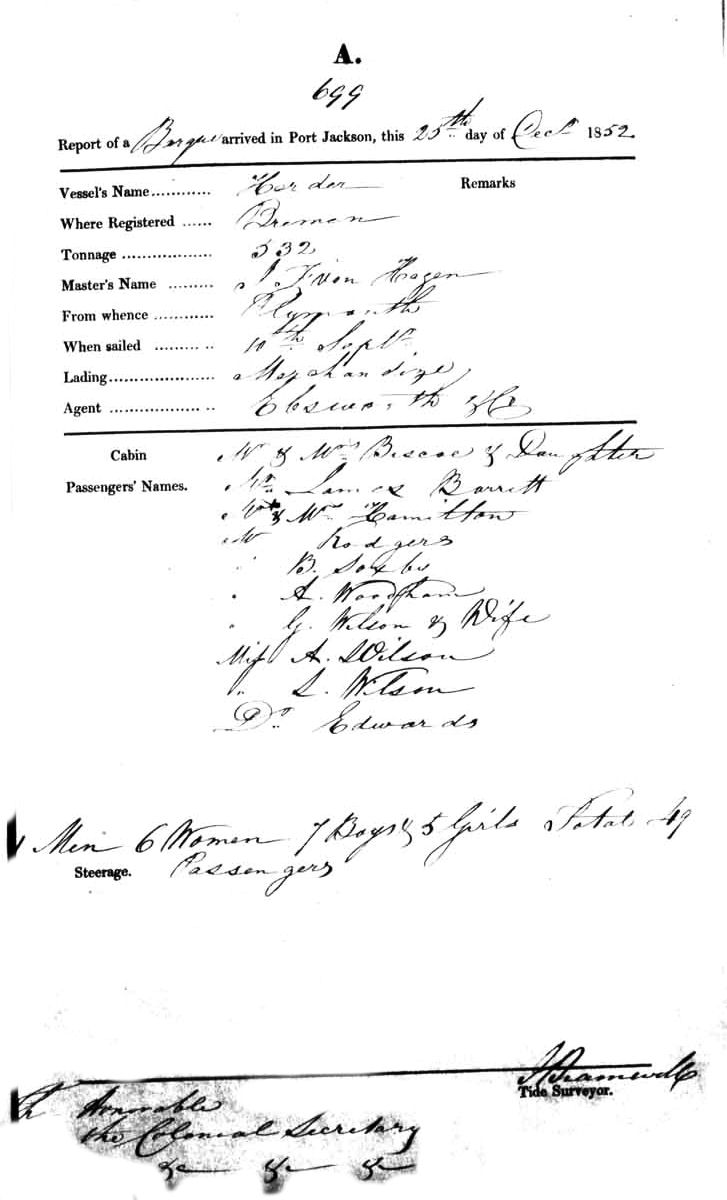 A.
699
Report of a Barque arrived in Port Jackson, this 25th day of Decr 1852
Vessel's Name............ Herder Remarks
Where Registered ...... Bremen
Tonnage .................. 532
Master's Name ......... von Hagen
From whence ............ Plymouth
When sailed .......... .. 10th Septr
Lading..................... Merchandize
Agent .................. .. Ebsworth & Co
Cabin Mr & Mrs Biscoe & Daughter
Passengers' Names. Mr James Barrett
Mr & Mrs Hamilton
Mr Rodgers
" B. Soxby
" A. Woodham
" G. Wilson & Wife
Miss A. Wilson
" L. Wilson
Dr Edwards
Men 6 Women 7 Boys & 5 Girls Total 49
Steerage. Passengers
Bramwell
Tide Surveyor.
Honorable
the Colonial Secretary
&c &c &c